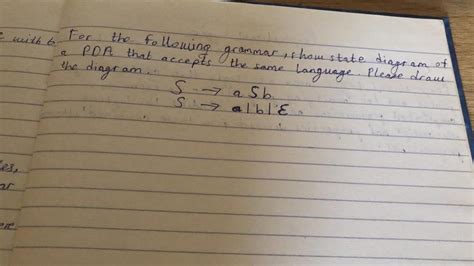 e with 6
For the following grammar, show state diagram of
a PDA that accepts the same language. Please draw
the diagram.
S → a S b
S → a | b | ε